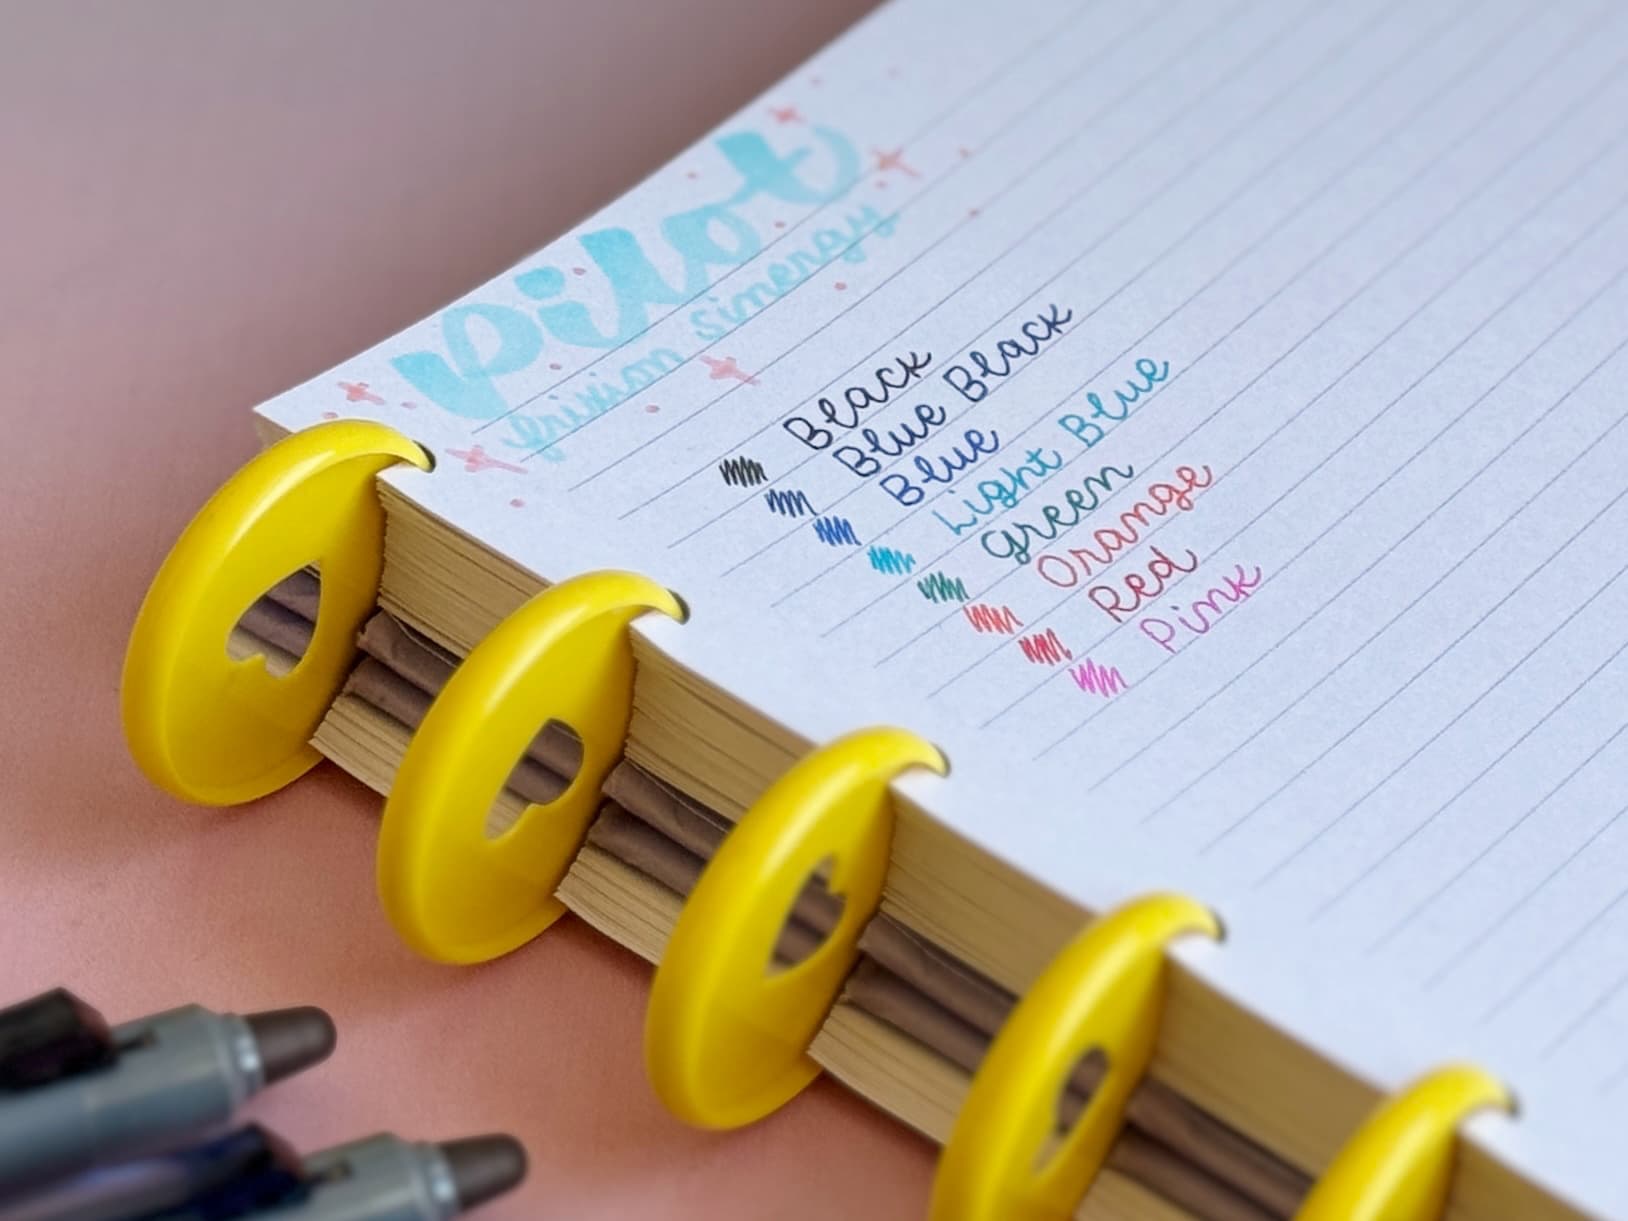 pilot
frixion sinergy
Black
Blue Black
Blue
Light Blue
green
Orange
Red
Pink